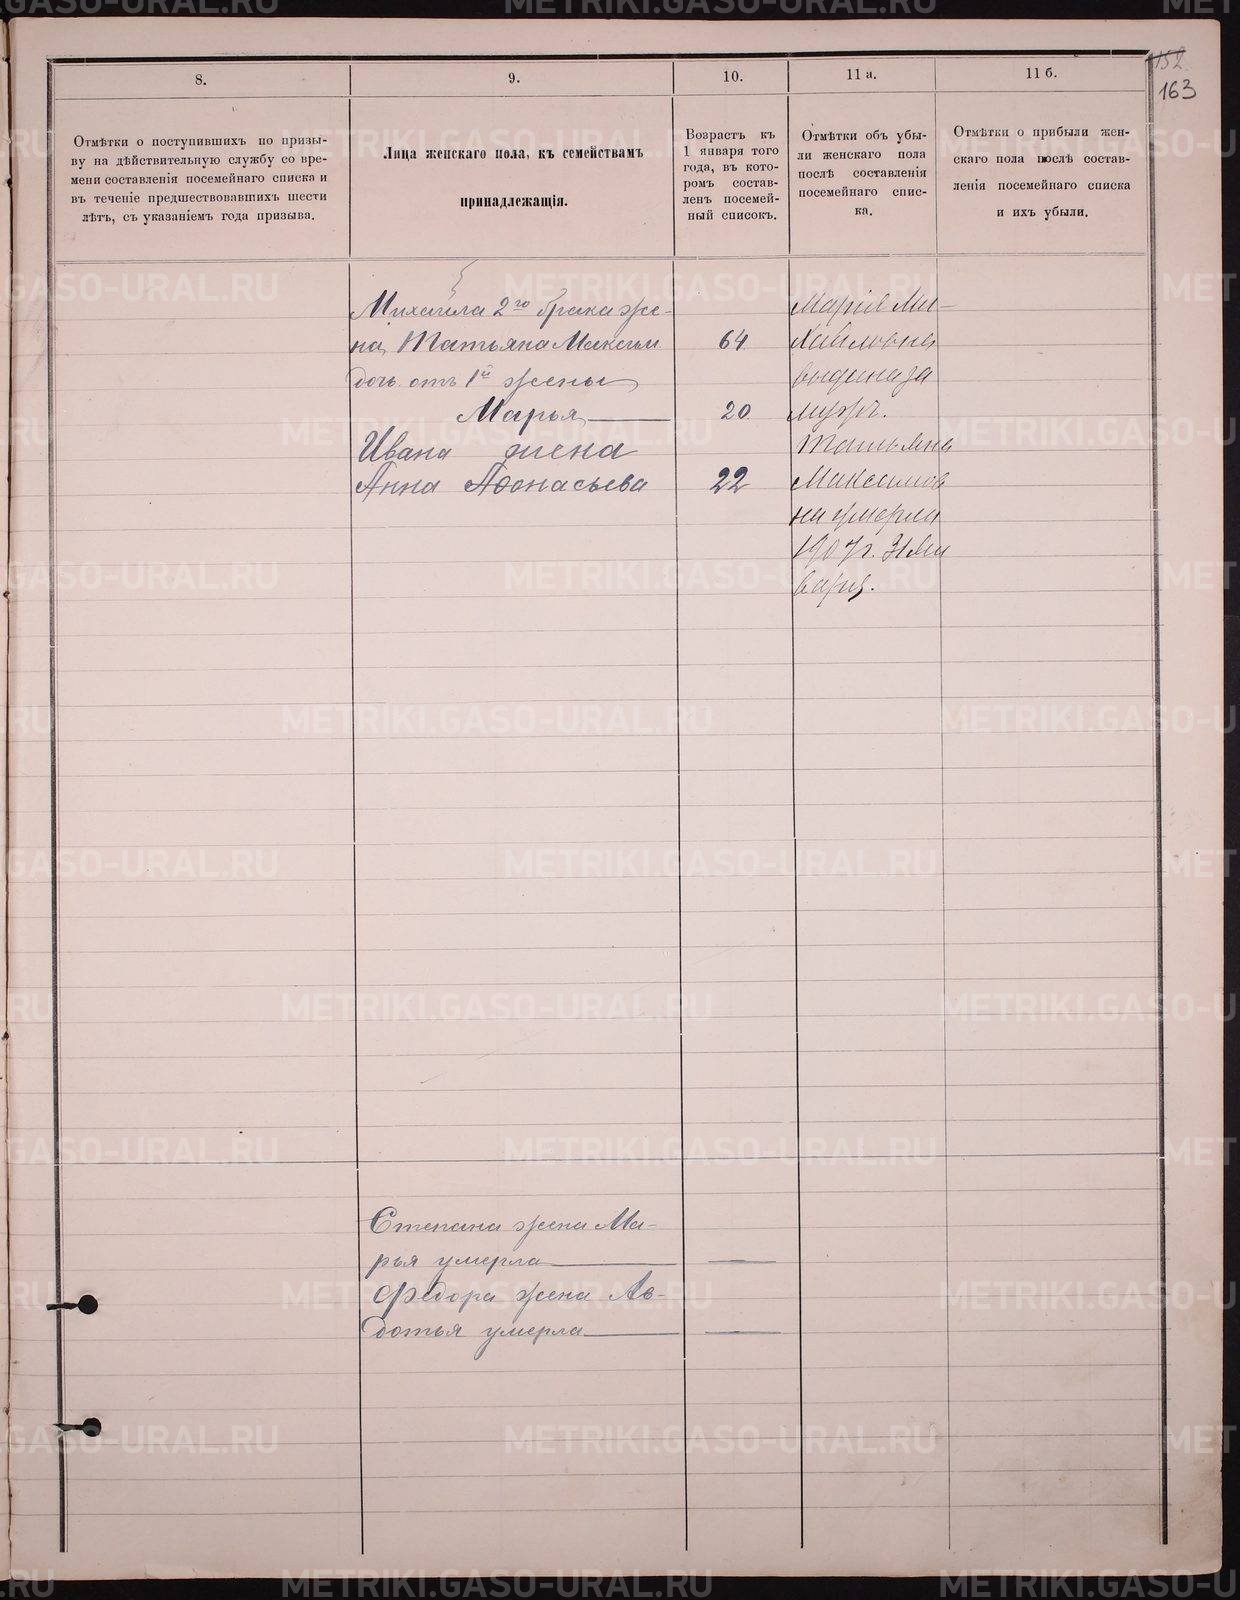 152
163
8.
9.
10.
11 а.
11 б.
Отмѣтки о поступившихъ по призы-
ву на дѣйствительную службу со вре-
мени составленія посемейнаго списка и
въ теченіе предшествовавшихъ шести
лѣтъ, съ указаніемъ года призыва.
Лица женскаго пола, къ семействамъ
принадлежащія.
Возрастъ къ
1 января того
года, въ кото-
ромъ состав-
ленъ посемей-
ный списокъ.
Отмѣтки объ убы-
ли женскаго пола
послѣ составленія
посемейнаго спис-
ка.
Отмѣтки о прибыли жен-
скаго пола послѣ состав-
ленія посемейнаго списка
и ихъ убыли.
Михаила 2го брака же-
на Татьяна Максим
64
дочь отъ 1й жены
Марья
20
Ивана жена
Анна Афонасьева
22
Марія Ми-
хайловна
выдана за
мужъ.
Татьяна
Максимов
на умерла
1907 г. Ян
варя.
Степана жена Ма-
рья умерла
Федора жена Ав-
дотья умерла
METRIKI.GASO-URAL.RU